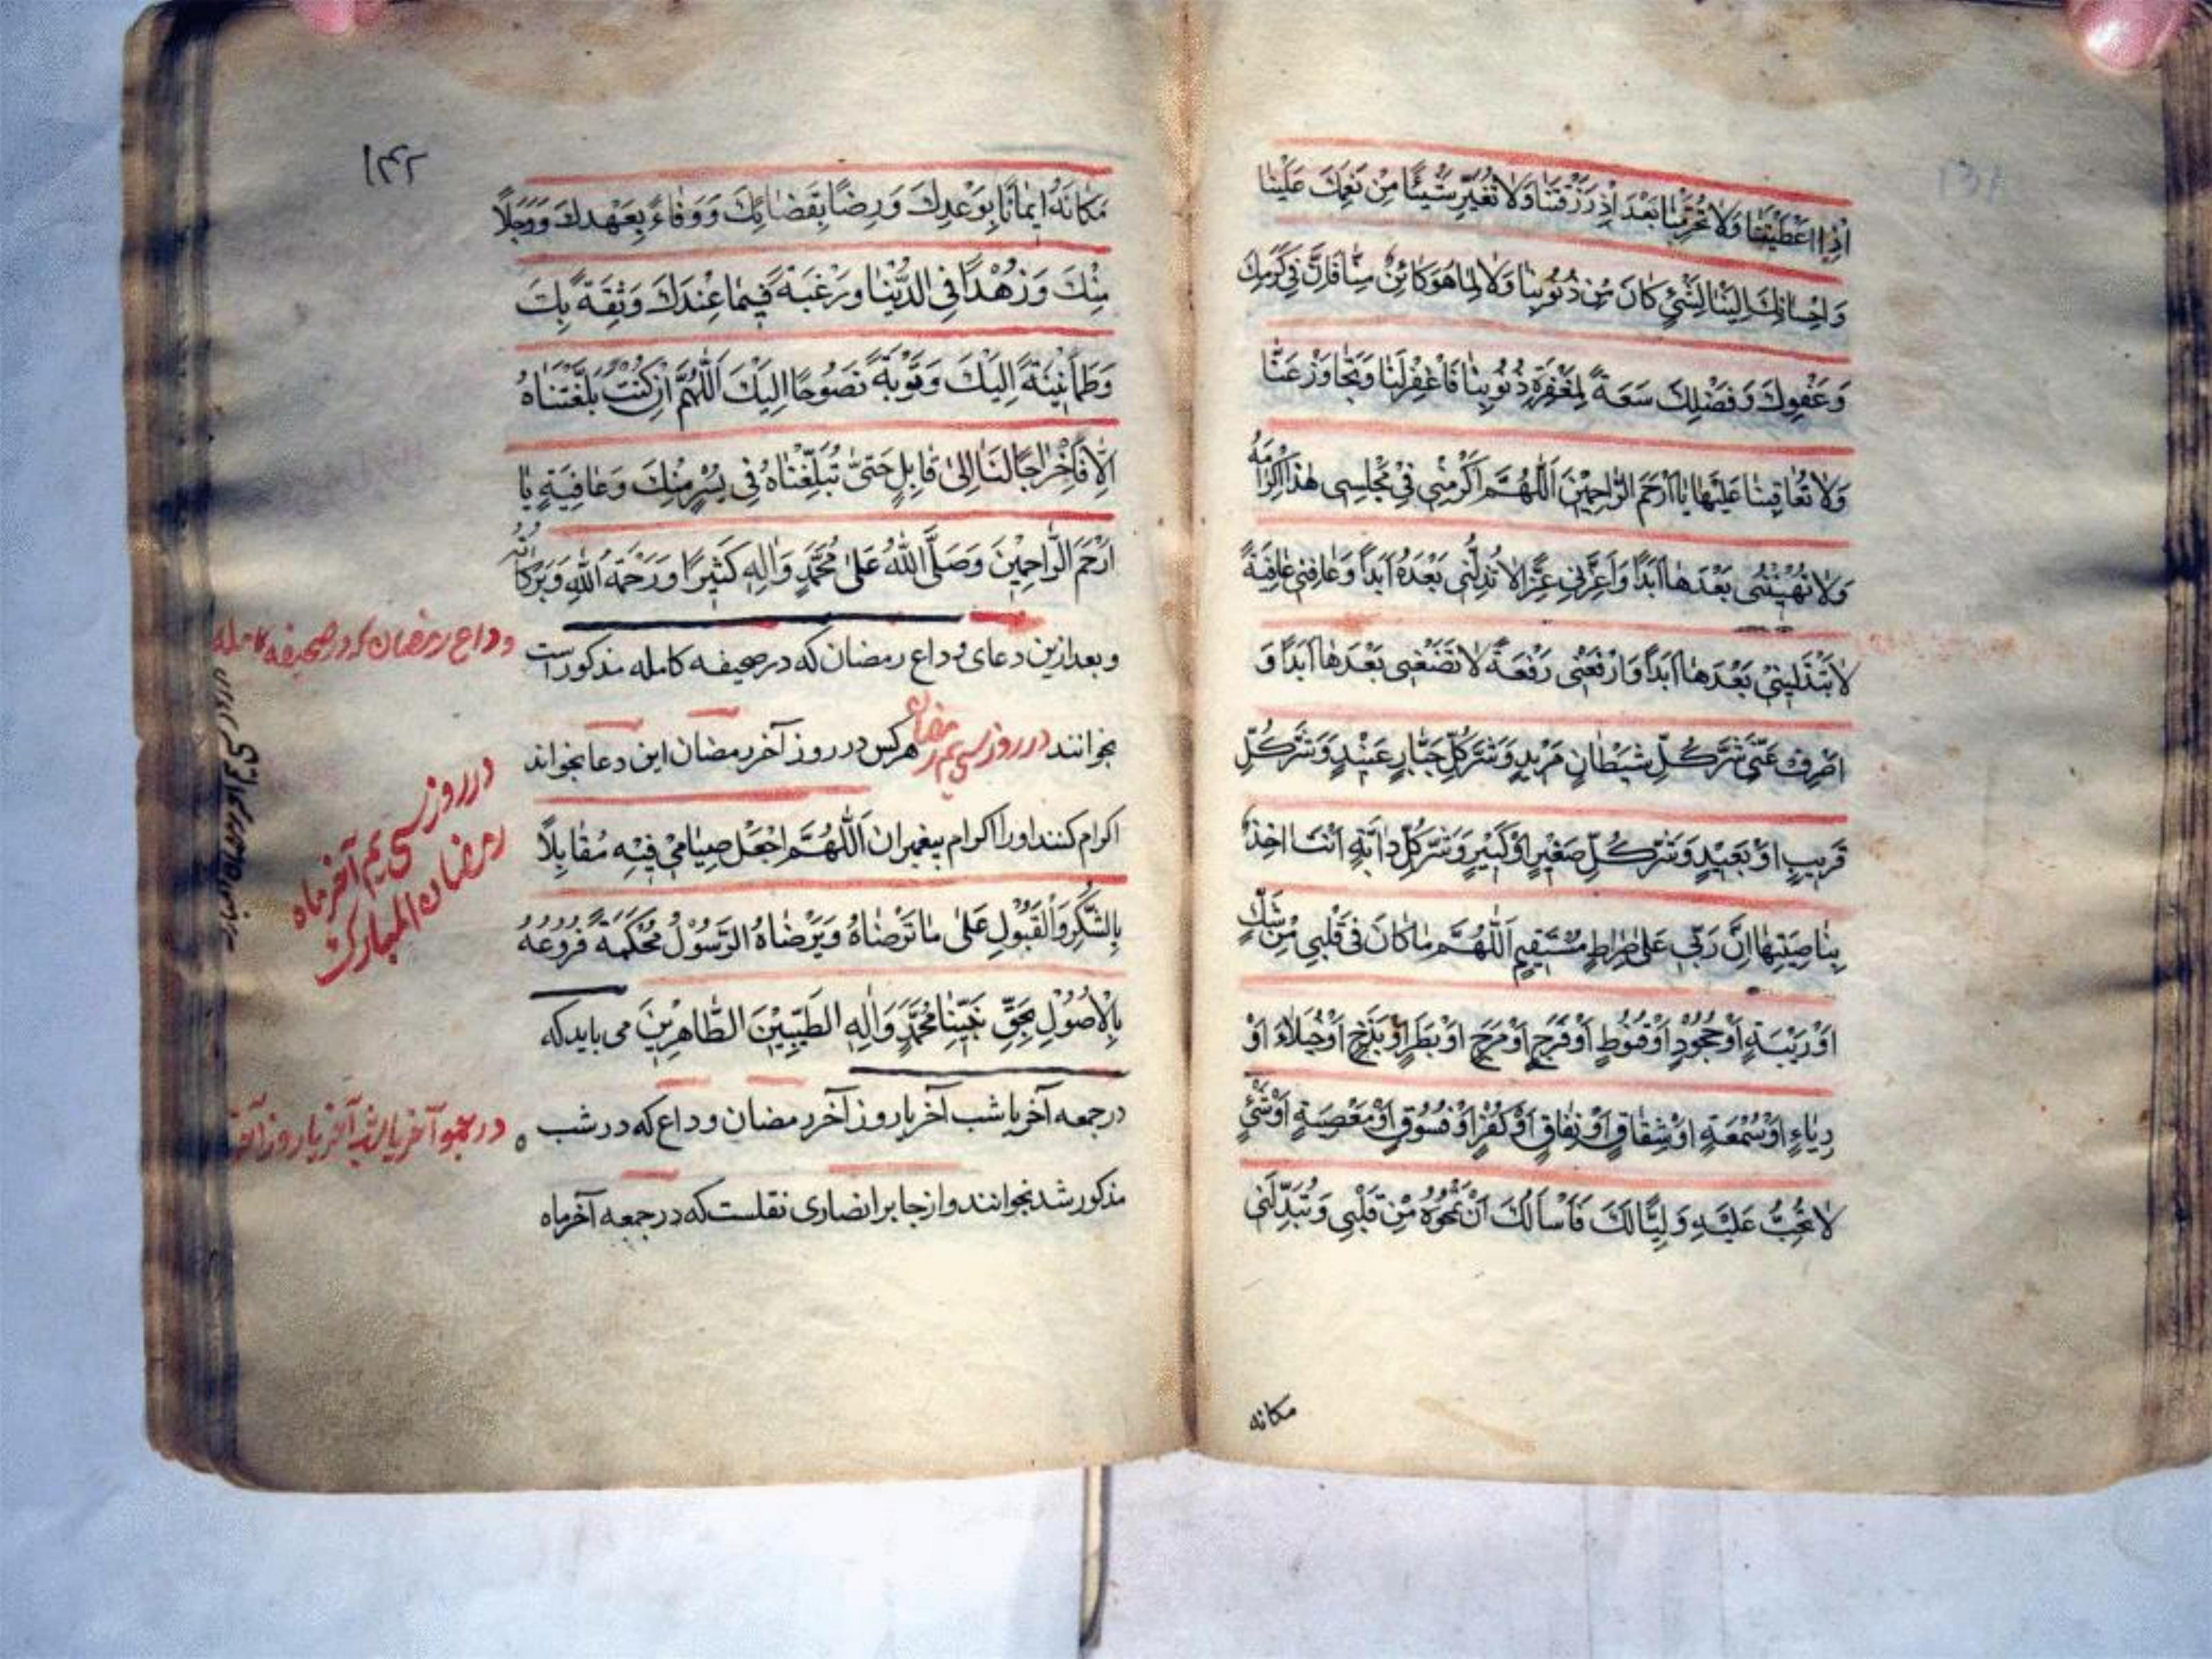 اِذَا اَعْطَيْتَنَا وَلَا تَحْرِمْنَا بَعْدَ اِذْ رَزَقْتَنَا وَلَا تُغَيِّرْ شَيْئًا مِنْ نِعَمِكَ عَلَيْنَا
وَاِحْسَانِكَ اِلَيْنَا لِشَيْئٍ كَانَ مِنْ ذُنُوبِنَا وَلَا لِمَا هُوَ كَائِنٌ مِنَّا فَاِنَّ فِي كَرَمِكَ
وَعَفْوِكَ وَفَضْلِكَ سَعَةً لِمَغْفِرَةِ ذُنُوبِنَا فَاغْفِرْ لَنَا وَتَجَاوَزْ عَنَّا
وَلَا تُعَاقِبْنَا عَلَيْهَا يَا اَرْحَمَ الرَّاحِمِيْنَ اَللّٰهُمَّ اَكْرِمْنِي فِيْ مَجْلِسِي هٰذَا كَرَامَةً
وَلَا تُهِيْنُنِي بَعْدَهَا اَبَدًا وَاَعِزَّنِي عِزًّا لَا تُذِلُّنِي بَعْدَهُ اَبَدًا وَعَافِنِي عَافِيَةً
لَا تَبْتَلِيْنِيْ بَعْدَهَا اَبَدًا وَارْفَعْنِي رَفْعَةً لَا تَضَعُنِي بَعْدَهَا اَبَدًا وَ
اصْرِفْ عَنِّي شَرَّ كُلِّ شَيْطَانٍ مَرِيْدٍ وَشَرَّ كُلِّ جَبَّارٍ عَنِيْدٍ وَشَرَّ كُلِّ
قَرِيبٍ اَوْ بَعِيْدٍ وَشَرَّ كُلِّ صَغِيْرٍ اَوْ كَبِيْرٍ وَشَرَّ كُلِّ دَابَّةٍ اَنْتَ اٰخِذٌ
بِنَاصِيَتِهَا اِنَّ رَبِّي عَلٰى صِرَاطٍ مُسْتَقِيْمٍ اَللّٰهُمَّ مَا كَانَ فِي قَلْبِي مِنْ شَكٍّ
اَوْ رَيْبَةٍ اَوْ جُحُوْدٍ اَوْ قُنُوْطٍ اَوْ فَرَحٍ اَوْ مَرَحٍ اَوْ بَطَرٍ اَوْ بَذَخٍ اَوْ خُيَلَاءَ اَوْ
رِيَاءٍ اَوْ سُمْعَةٍ اَوْ شِقَاقٍ اَوْ نِفَاقٍ اَوْ كُفْرٍ اَوْ فُسُوْقٍ اَوْ مَعْصِيَةٍ اَوْ شَيْئٍ
لَا تُحِبُّ عَلَيْهِ وَلِيًّا لَكَ فَاَسْاَلُكَ اَنْ تَمْحُوَهُ مِنْ قَلْبِي وَتُبَدِّلَنِي
مكانه
۱۴۲
مَكَانَهُ اِيمَانًا بِوَعْدِكَ وَرِضًا بِقَضَائِكَ وَوَفَاءً بِعَهْدِكَ وَوَجَلًا
مِنْكَ وَزُهْدًا فِي الدُّنْيَا وَرَغْبَةً فِيمَا عِنْدَكَ وَثِقَةً بِكَ
وَطُمَأْنِينَةً اِلَيْكَ وَتَوْبَةً نَصُوحًا اِلَيْكَ اَللّٰهُمَّ اِنْ كُنْتَ بَلَّغْتَنَاهُ
اِلَّا فَاَخِّرْ اٰجَالَنَا اِلٰى قَابِلٍ حَتّٰى تُبَلِّغَنَاهُ فِي يُسْرٍ مِنْكَ وَعَافِيَةٍ يَا
اَرْحَمَ الرَّاحِمِيْنَ وَصَلَّى اللّٰهُ عَلٰى مُحَمَّدٍ وَاٰلِهِ كَثِيْرًا وَرَحْمَةُ اللّٰهِ وَبَرَكَاتُهُ
وبعد ازين دعاى وداع رمضان كه در صحيفه كامله مذكور است
وداع رمضان كه در صحيفه كامله
بخوانند در روز سى يم رمضان هركس در روز آخر رمضان اين دعا بخواند
در روز سى يم آخر ماه
رمضان المبارك
اكرام كنند او را اكرام پيغمبران اَللّٰهُمَّ اجْعَلْ صِيَامِيْ فِيْهِ مُقَابَلًا
بِالشُّكْرِ وَالْقَبُوْلِ عَلٰى مَا تَرْضَاهُ وَيَرْضَاهُ الرَّسُوْلُ مُحْكَمَةً فُرُوْعُهُ
بِالْاُصُوْلِ بِحَقِّ نَبِيِّنَا مُحَمَّدٍ وَاٰلِهِ الطَّيِّبِيْنَ الطَّاهِرِيْنَ مى بايد كه
در جمعه آخر يا شب آخر يا روز آخر رمضان وداع كه در شب
در جمعه آخر يا شب آخر يا روز آخر
مذكور شد بخوانند و از جابر انصارى نقلست كه در جمعه آخر ماه